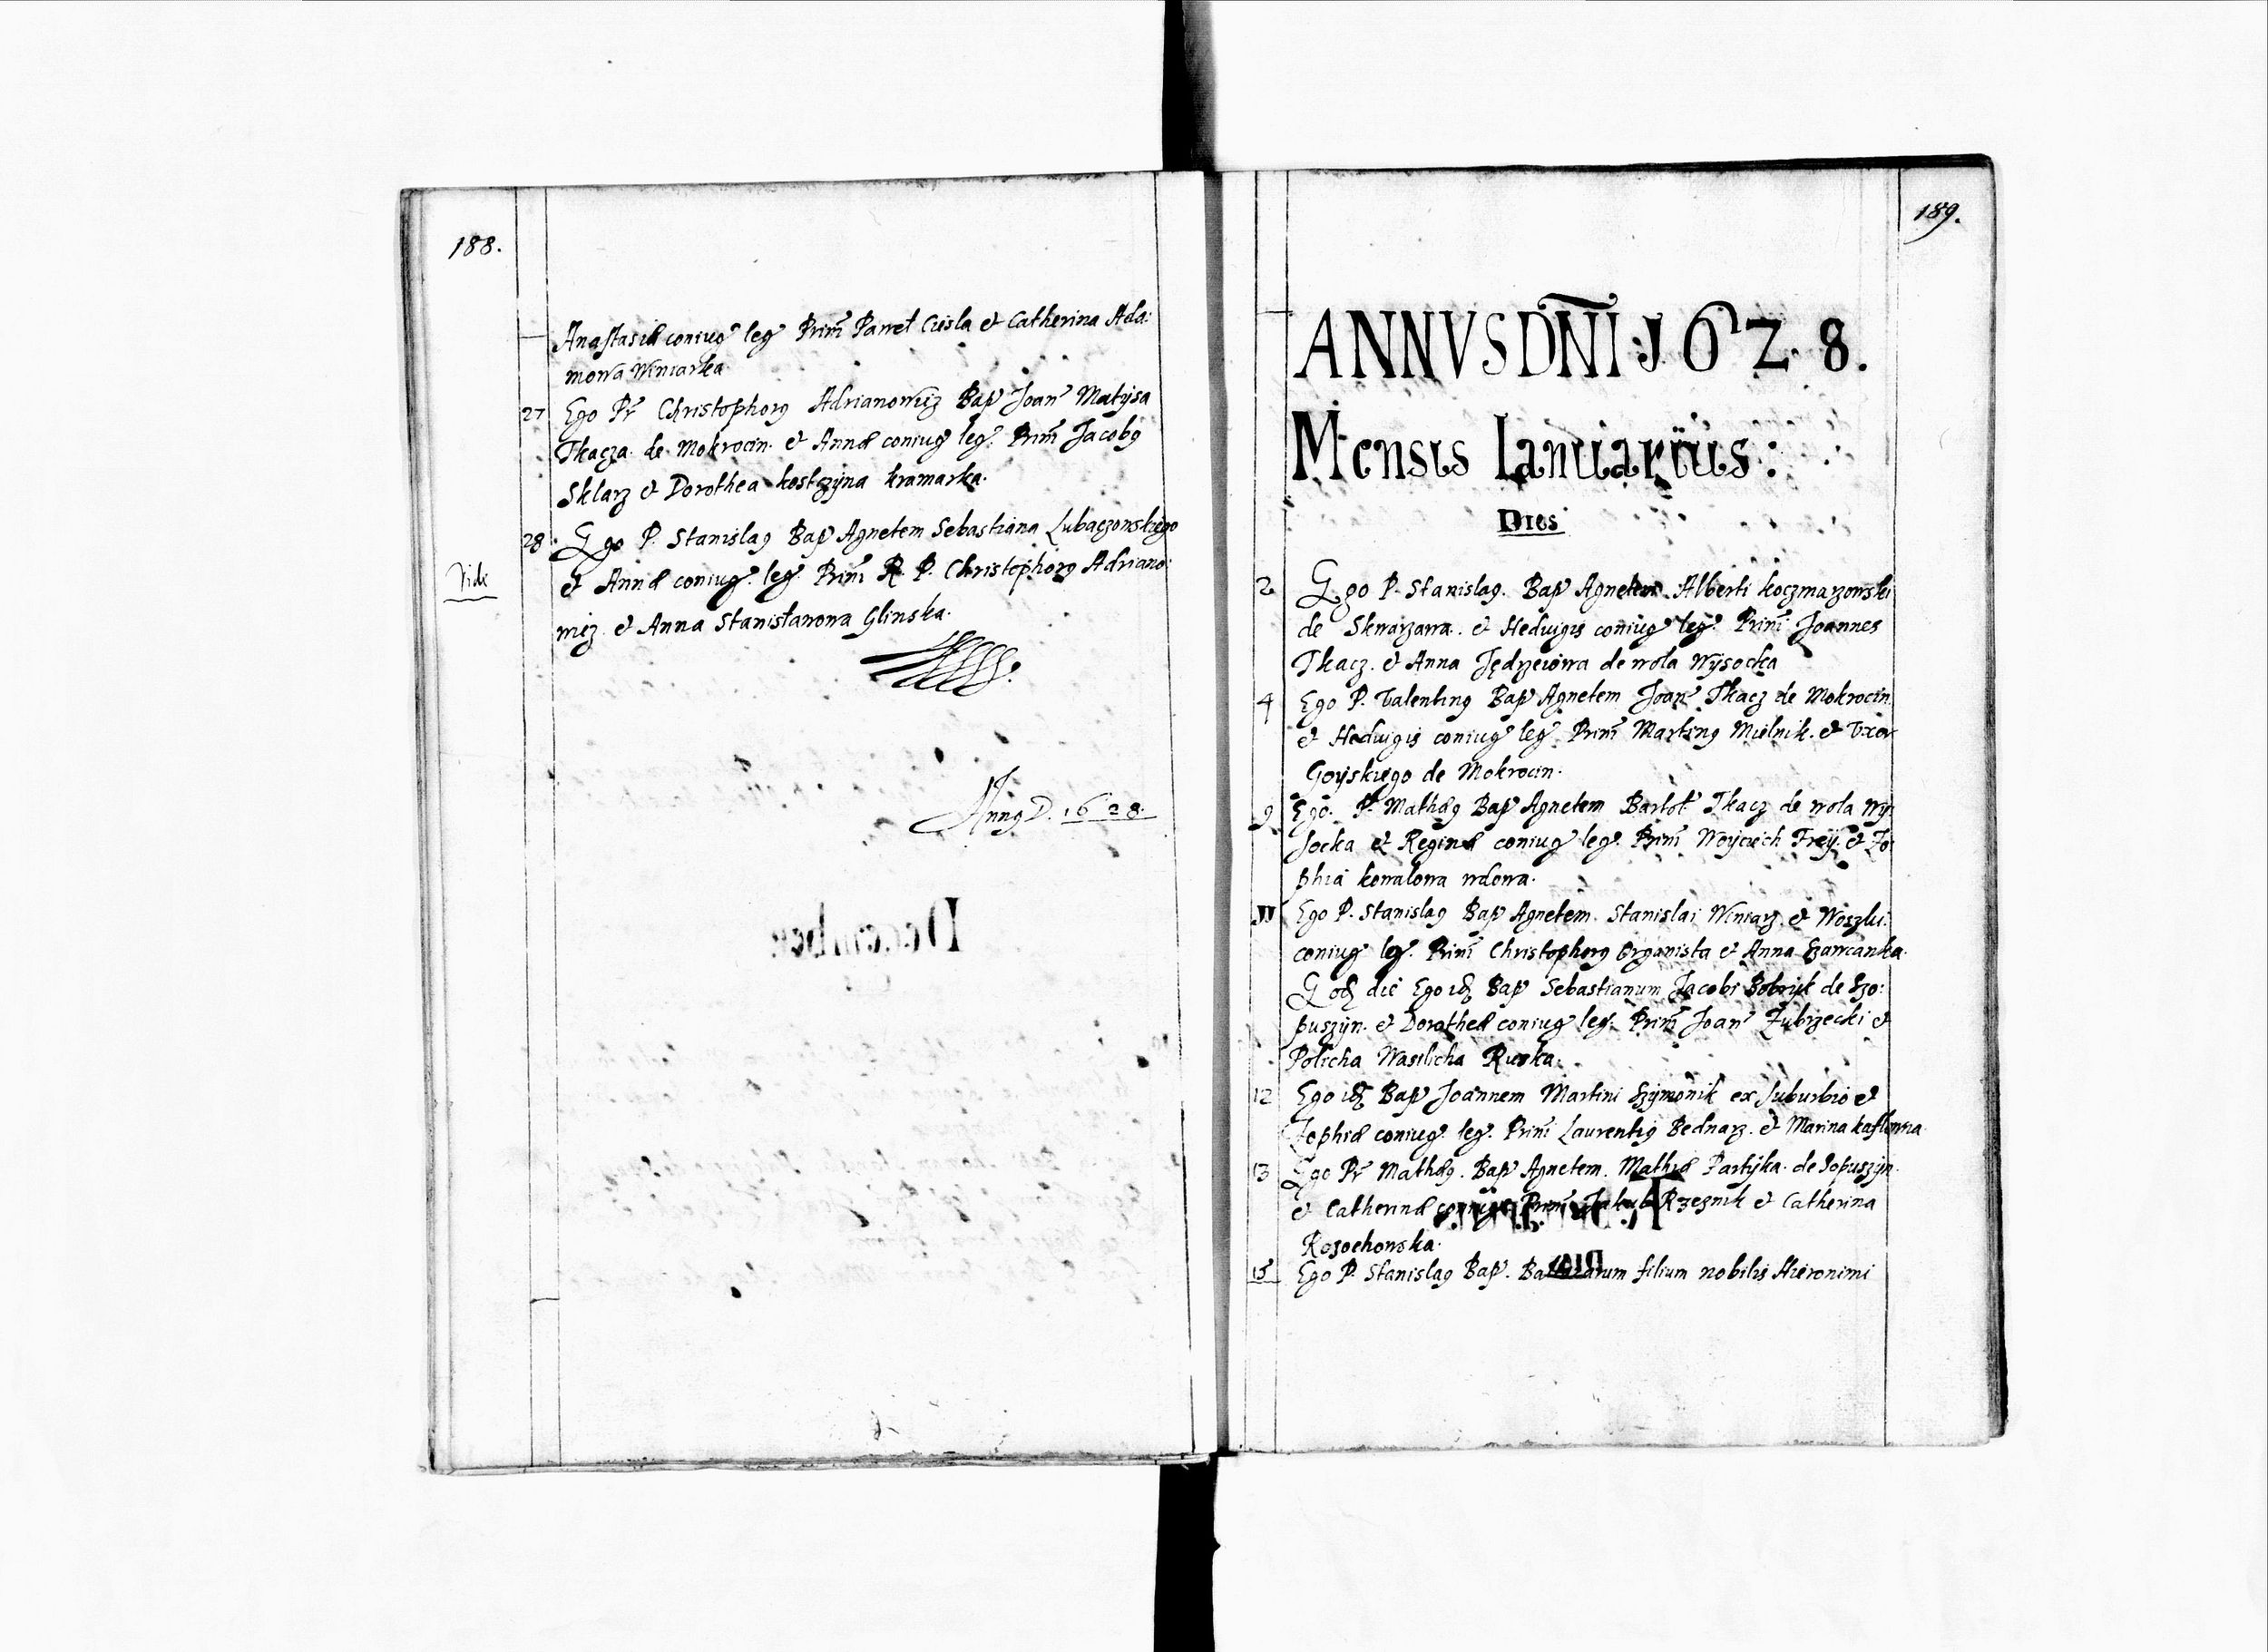 188.
Anastasiæ coniug leg Prim Paweł Cieśla et Catherina Ada:
mowa Winiarka.
27 Ego Pr Christophorꝰ Adrianowicz Bap Joan Matysa
Tkacza de Mokrocin. et Annæ coniug leg. Prim Jacobꝰ
Sklarz et Dorothea kostczyna kramarka.
28. Ego P. Stanislaꝰ Bap Agnetem Sebastiana Lubaczowskiego
Vide et Annæ coniug. leg. Prim R. P. Christophorꝰ Adriano:
wicz. et Anna Stanisławowa Glinska.
Annꝰ D. 1628.
189.
ANNVS DNI J6Z8.
Mensis Ianuariius:
Dies
2 Ego P. Stanislaꝰ. Bap Agnetem Alberti koczmarzowski
de Skwarzawa. et Hedvigis coniug leg. Prim Joannes
Tkacz. et Anna Jędrzeiowa de wola Wysocka
4 Ego P. Valentinꝰ Bap Agnetem Joan Tkacz de Mokrocin.
et Hedvigis coniug leg Prim Martinꝰ Mielnik. et Vxor
Goyskiego de Mokrocin.
9 Ego. P. Mathæꝰ Bap Agnetem Bartoł Tkacz de wola Wy:
socka et Reginæ coniug leg. Prim Woyciech Frey. et Zo:
phia kowalowa wdowa.
11 Ego P. Stanislaꝰ Bap Agnetem. Stanislai Winiarz et
coniug leg. Prim Christophorꝰ Organista et Anna
Eod die Ego id Bap Sebastianum Jacobi Bobryk de
puszyn. et Dorotheæ coniug leg. Prim Joan Zubrzecki et
Wasilicha Ruska.
12 Ego id Bap Joannem Martini Szymonik ex suburbio et
Zophiæ coniug. leg. Prim Laurentiꝰ Bednarz. et Marina
13 Ego Pr Mathæꝰ. Bap Agnetem. Mathiæ Partyka. de Sopuszyn.
et Catherinæ coniug. Prim Jakub Rzeznik et Catherina
Rosochowska.
15 Ego P. Stanislaꝰ Bap. Baltazarum filium nobilis Hieronimi